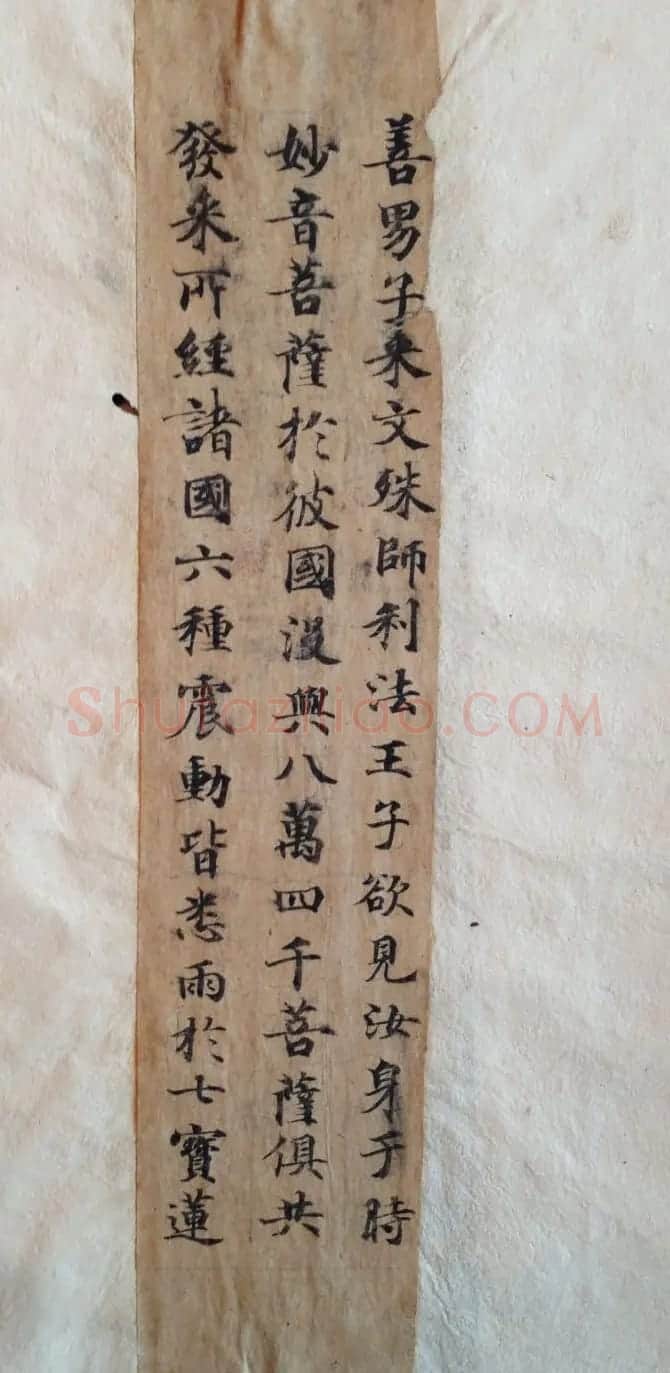 善男子来文殊師利法王子欲見汝身于時
妙音菩薩於彼國没與八萬四千菩薩俱共
發来所經諸國六種震動皆悉雨於七寶蓮
Shufazidao.COM